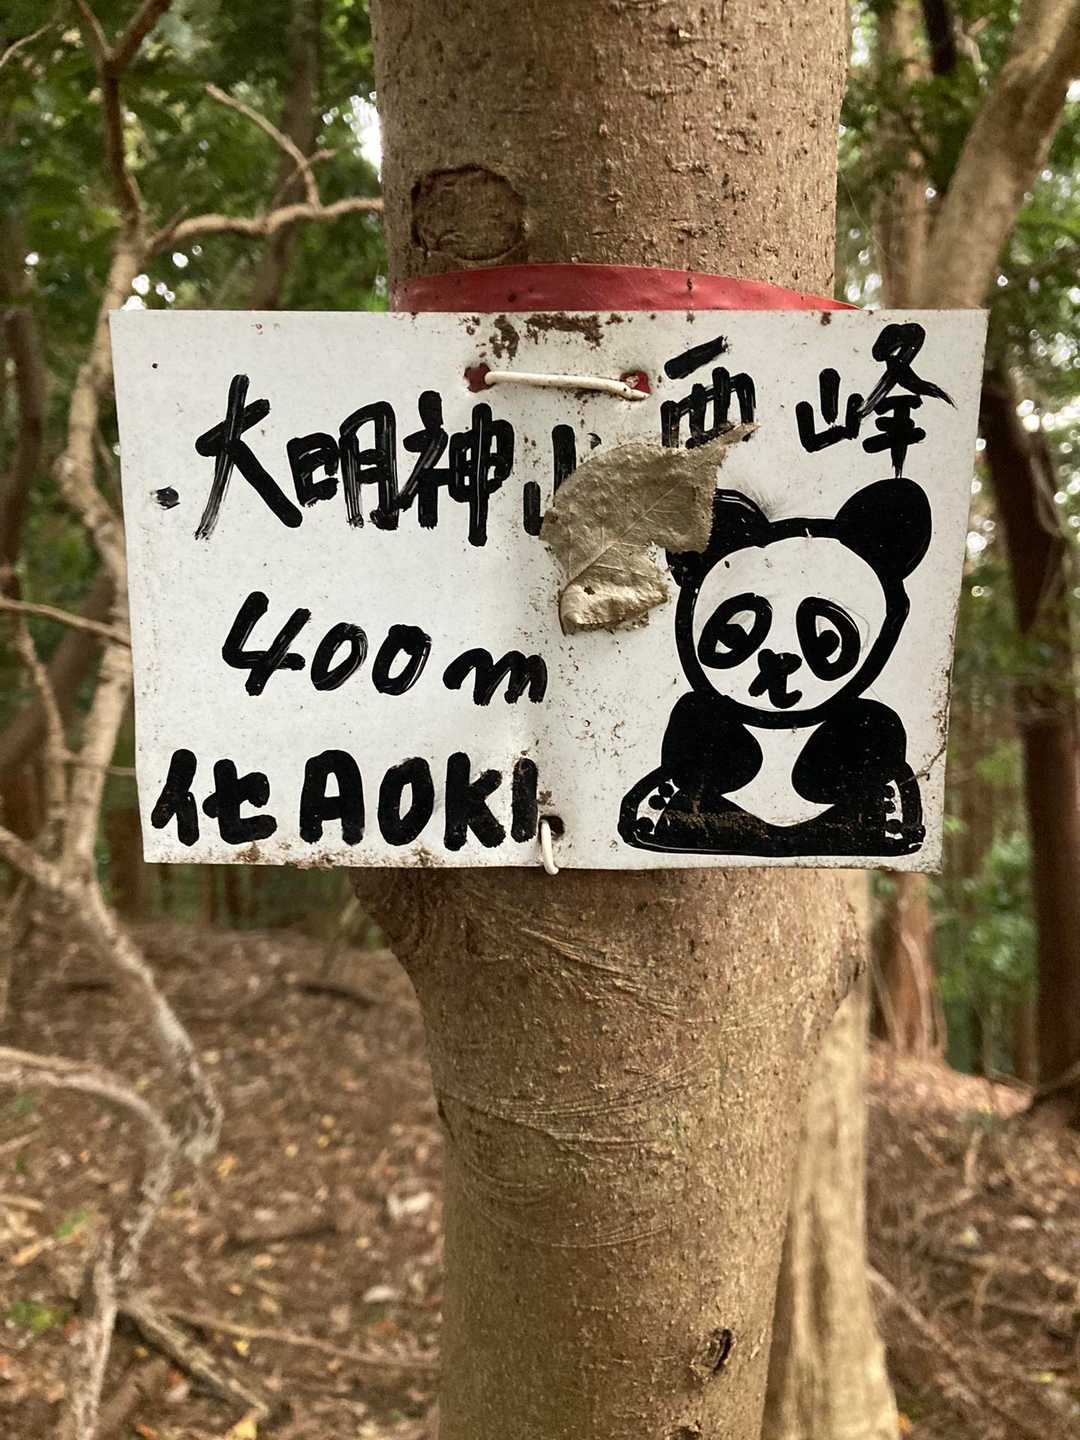 大明神山西峰
400m
化AOKI